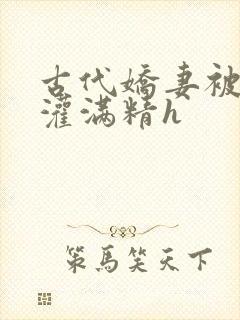 古代嬌妻被
灌满精h
策馬笑天下